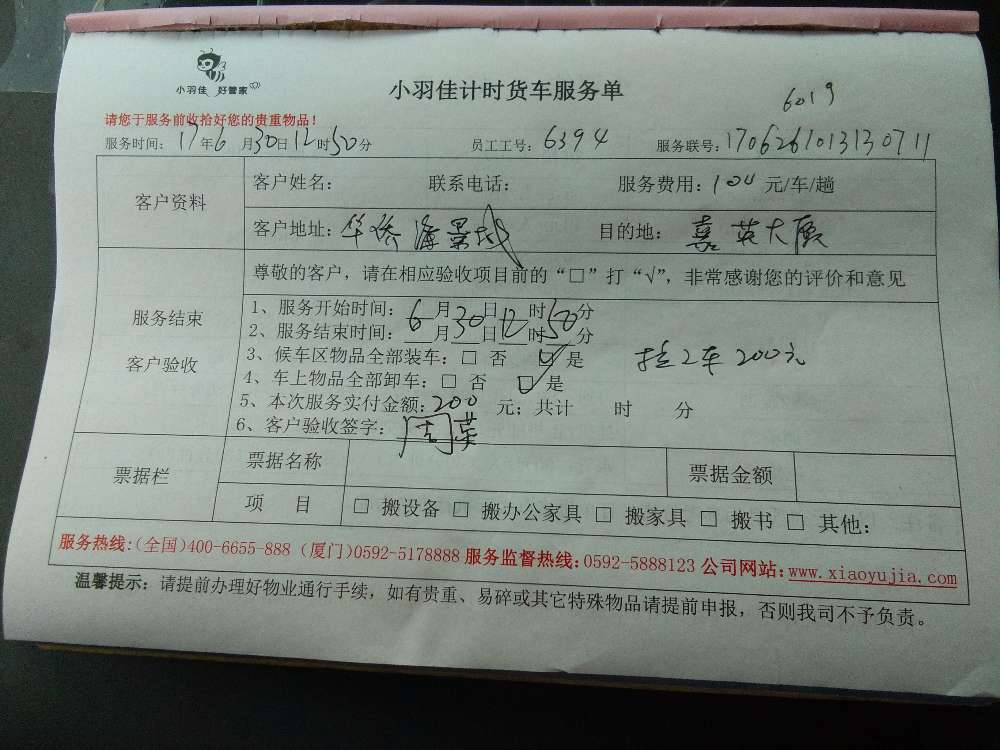 小羽佳 好管家
小羽佳计时货车服务单
6019
请您于服务前收拾好您的贵重物品！
服务时间：17年6月30日12时50分 员工工号：6394 服务联号：1706261013130711
客户资料 客户姓名： 联系电话： 服务费用：100元/车/趟
客户地址：华侨海景城 目的地：嘉英大厦
服务结束
客户验收
尊敬的客户，请在相应验收项目前的“□”打“√”，非常感谢您的评价和意见
1、服务开始时间：6月30日12时50分
2、服务结束时间：__月__日__时__分
3、候车区物品全部装车：□ 否 ☑ 是 拉2车200元
4、车上物品全部卸车：□ 否 □ 是
5、本次服务实付金额：200 元；共计 时 分
6、客户验收签字：周英
票据栏 票据名称 票据金额
项 目 □ 搬设备 □ 搬办公家具 □ 搬家具 □ 搬书 □ 其他：
服务热线：(全国)400-6655-888 (厦门)0592-5178888 服务监督热线：0592-5888123 公司网站：www.xiaoyujia.com
温馨提示：请提前办理好物业通行手续，如有贵重、易碎或其它特殊物品请提前申报，否则我司不予负责。